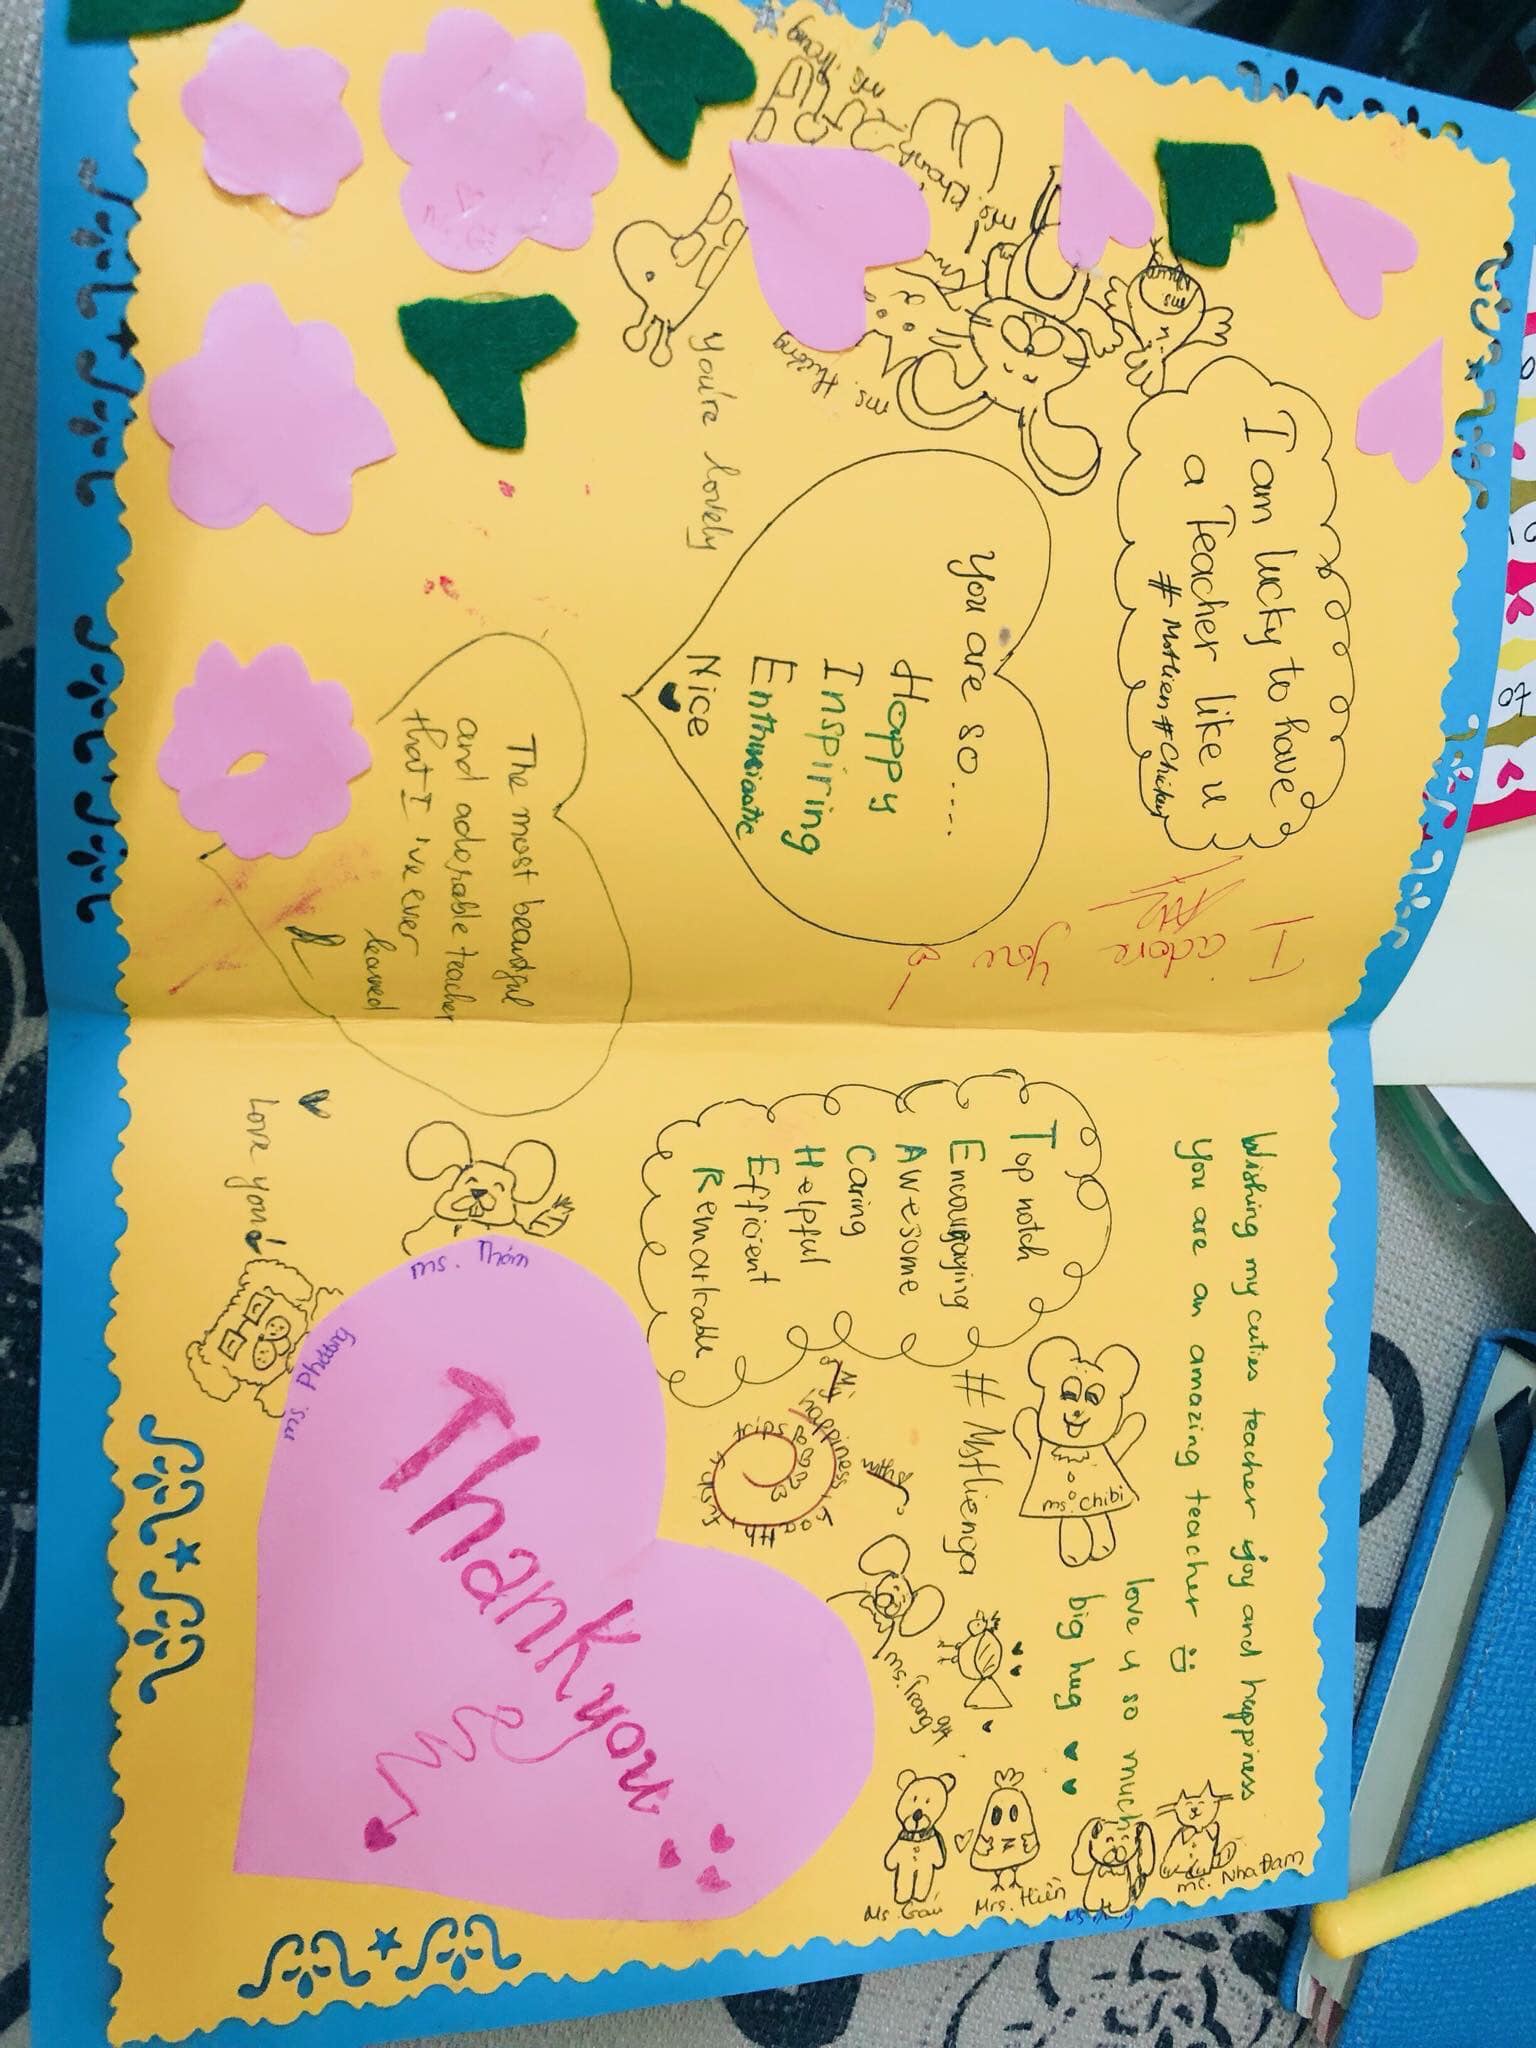 ms. Trang
ms. Khánh
ms. Hường
I am lucky to have
a Teacher like u
# MsHien # Chicken
I adore you
You are so.....
Happy
Inspiring
Enthusiastic
Nice
you're lovely
The most beautiful
and adorable teacher
that I 've ever
learned
Wishing my cuties teacher joy and happiness
You are an amazing teacher
love u so much
big hug
Top notch
Encouraging
Awesome
Caring
Helpful
Efficient
Remarkable
# MsHienga
ms. Chibi
My happiness
ms. Nha Đam
Mrs. Hiền
Ms. Gấu
ms. Thơm
Love you!
ms. Phương
Thank you